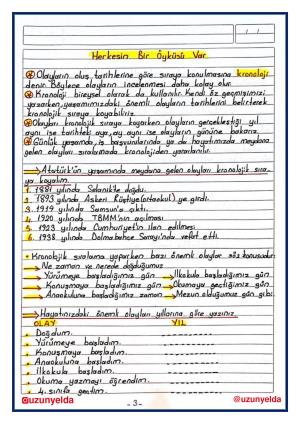 / /
Herkesin Bir Öyküsü Var
Olayların oluş tarihlerine göre sıraya konulmasına kronoloji
denir. Böylece olayların incelenmesi daha kolay olur.
Kronoloji bireysel olarak da kullanılır. Kendi öz geçmişimizi
yazarken, yaşamımızdaki önemli olayların tarihlerini belirterek
kronolojik sıraya koyabiliriz.
Olayları kronolojik sıraya koyarken olayların gerçekleştiği yıl
aynı ise tarihteki aya, ay aynı ise olayların gününe bakarız.
Günlük yaşamda, iş başvurularında ya da hayatımızda meydana
gelen olayları sıralamada kronolojiden yararlanılır.
Atatürk'ün yaşamında meydana gelen olayları kronolojik sıra-
ya koyalım.
1. 1881 yılında Selanik'te doğdu.
2. 1893 yılında Askeri Rüştiye(ortaokul)'ye girdi.
3. 1919 yılında Samsun'a çıktı.
4. 1920 yılında TBMM'nin açılması
5. 1923 yılında Cumhuriyet'in ilan edilmesi
6. 1938 yılında Dolmabahçe Sarayı'nda vefat etti.
Kronolojik sıralama yaparken bazı önemli olaylar söz konusudur.
Ne zaman ve nerede doğduğumuz
Yürümeye başladığımız gün → İlkokula başladığımız gün
Konuşmaya başladığımız gün → Okumaya geçtiğimiz gün
Anaokuluna başladığımız zaman → Mezun olduğumuz gün gibi.
Hayatınızdaki önemli olayları yıllarına göre yazınız.
OLAY YIL
Doğdum.
Yürümeye başladım.
Konuşmaya başladım.
Anaokuluna başladım.
İlkokula başladım.
Okuma yazmayı öğrendim.
4. sınıfa geçtim.
@uzunyelda -3- @uzunyelda